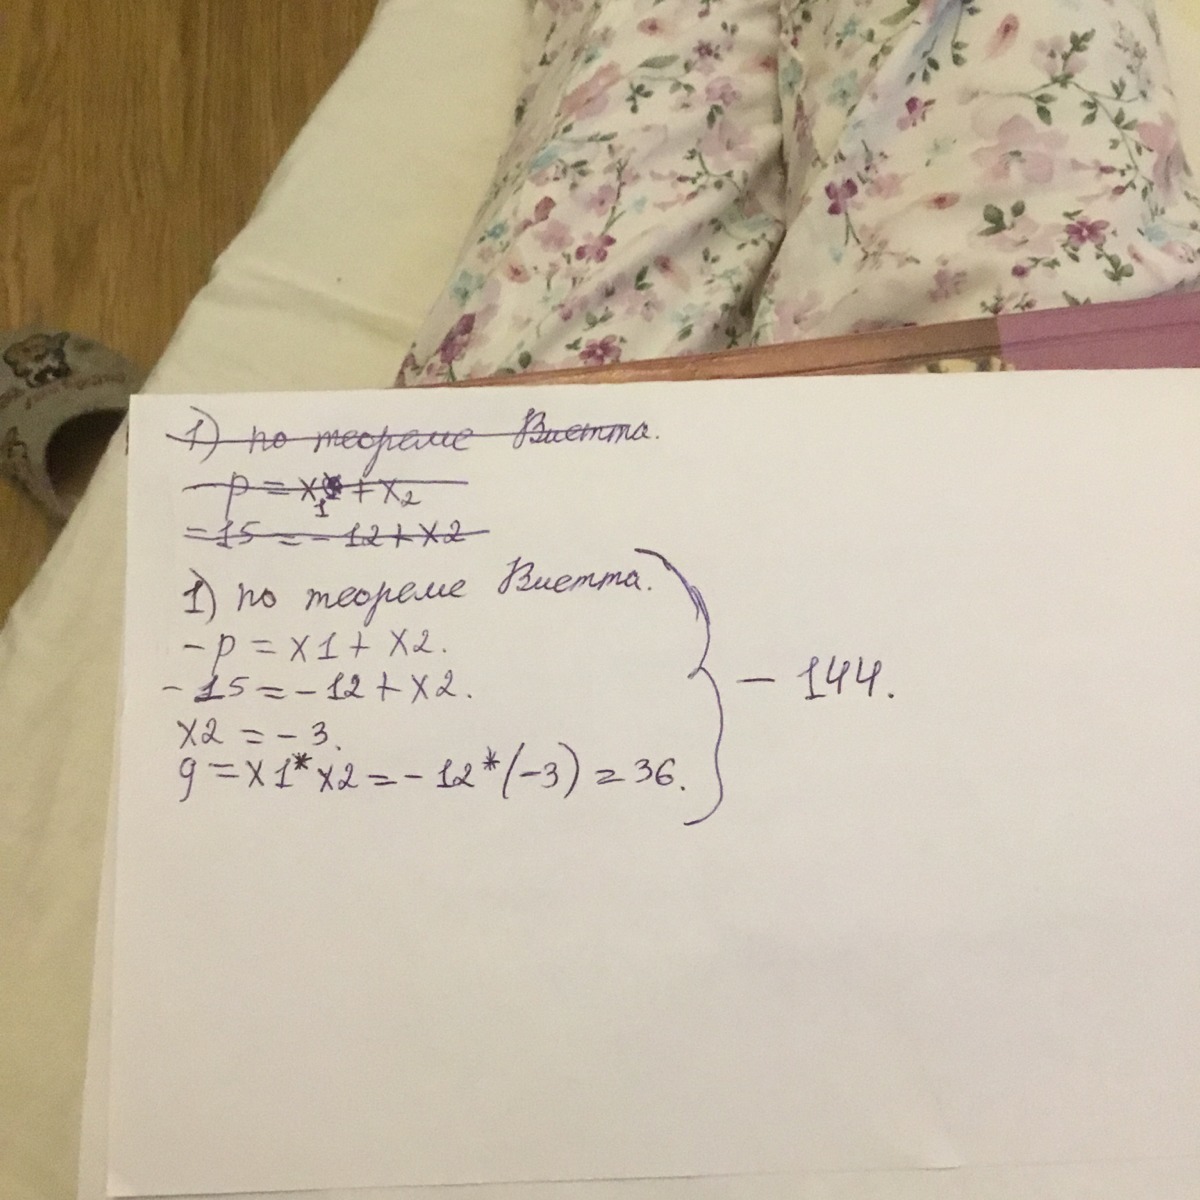 1) по теореме Виетта.
-p = x1 + x2
= 15 = - 12 + x2
1) по теореме Виетта.
- p = x1 + x2.
- 15 = - 12 + x2.
x2 = - 3.
q = x1 * x2 = - 12 * (-3) = 36.
- 144.